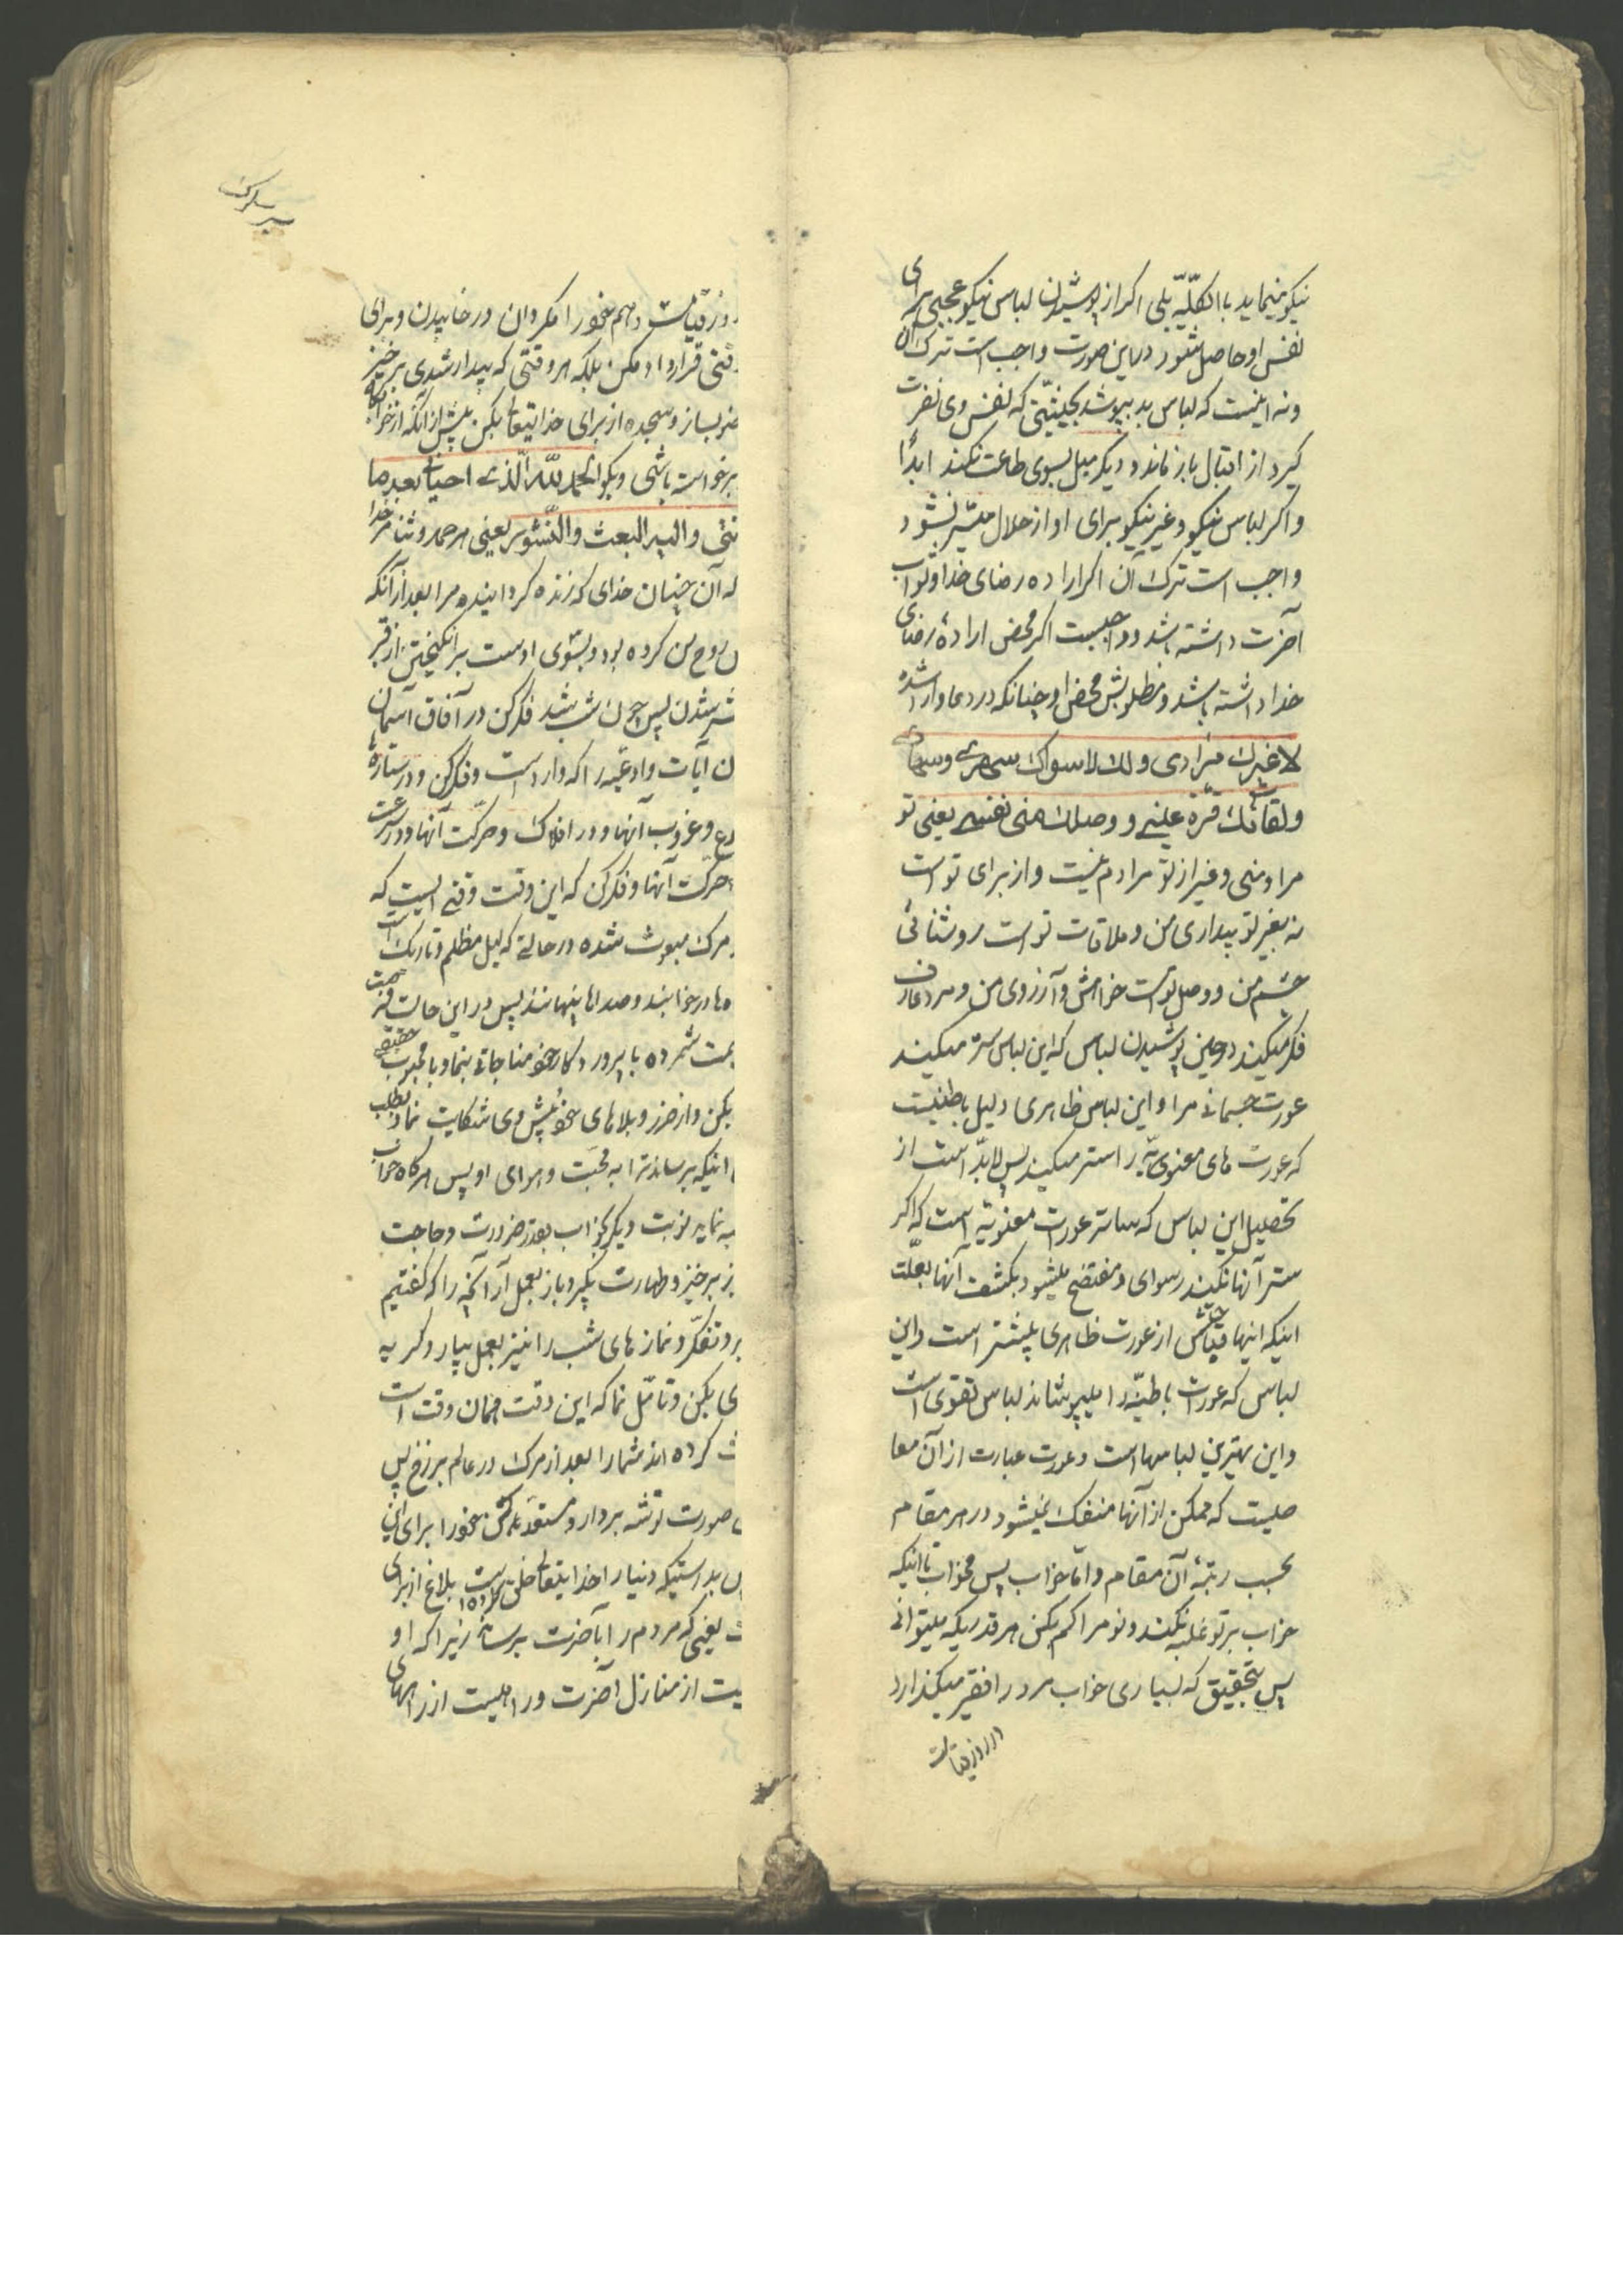 نیکو مینماید باالکلّیّه بلی اکر از پوشیدن لباس نیکو عجبی برای
نفس او حاصل بشود در این صورت واجب است ترک آن
و نه اینست که لباس بد بپوشد بحیثیّتی که نفس وی نفرت
کیرد از اقبال باز ماند و دیکر میل بسوی طاعت نکند ابداً
و اکر لباس نیکو و غیر نیکو برای او از حلال میسّر نشود
واجب است ترک آن اکر اراده رضای خدا و ثواب
آخرت داشته باشد و واجبست اکر محض ارادۀ رضای
خدا داشته باشد و مطلوبش محض او چنانکه در دعا وارد شده
لا غیرک مرادی ولک لا سواک سهری وسهادی
ولقائک قرّة عینی ووصلک منی نفسی یعنی تو
مراد منی و غیر از تو مرادم نیست و از برای تو است
نه بغیر تو بیداری من و ملاقات تو است روشنائی
چشم من و وصل تو است خواهش و آرزوی من و مرد عارف
فکر میکند در حین پوشیدن لباس که این لباس ستر میکند
عورت جسمانی مرا و این لباس ظاهری دلیل باطنیست
که عورت های معنویّه را ستر میکند پس لابدّ است از
تحصیل این لباس که ساتر عورات معنویّه است که اکر
ستر آنها نکند رسوای و مفتضح میشود بکشف آنها بعلّت
اینکه اینها قباحتش از عورت ظاهری بیشتر است و این
لباس که عورات باطنیّه را میپوشاند لباس تقوی است
و این بهترین لباسها است و عورت عبارت از آن معا
صیست که ممکن از آنها منفک نمیشود در هر مقام
بحسب رتبۀ آن مقام و امّا خواب پس مخواب تا اینکه
خواب بر تو غلبه نکند و نوم را کم بکن هر قدریکه میتوانی
پس بتحقیق که بسیاری خواب مرد را فقیر میکذارد
در روز قیامت
سیر سلوک
روز قیامت و هم خود را مکردان در خابیدن و برای
قتی قرار داد مکن بلکه هر وقتی که بیدار شدی برخیز
ضو بساز و سجده از برای خدایتعالی بکن پیش از آنکه از خوابگاه
برخواسته باشی و بکو الحمد للّه الّذی احیانی بعد ما
تنی والیه البعث والنّشور یعنی هر حمد و ثنا مر خدا
له آن چنان خدای که زنده کردانیده مرا بعد از آنکه
ن روح من کرده بود و بسوی اوست برانکیختن از قبر
شر شدن پس چون شب شد فکر کن در آفاق آسمان
ن آیات و ادعیه را که وارد است و فکر کن و در ستارۀ
وع و غروب آنها و در افلاک و حرکت آنها و در سرعت
حرکت آنها و فکر کن که این وقت وقتی است که
مرک مبعوث شده در حالتی که لیل مظلم و تاریک است
ه ها در خوابند و صداها پنهانند پس در این حالت
یمت شمرده با پروردکار خود مناجاتی بنما و با محبوب حقیقی
بکن و از ضرر و بلاهای خود پیش وی شکایت نما و بطلب
اینکه برساند ترا به محبّت و هوای او پس هر کاه خواب
به نماید نوبت دیکر بخواب بقدر ضرورت و حاجت
ز برخیز و طهارت بکیر و باز بعمل آر آنچه را که کفتیم
بر و تفکّر و نماز های شب را نیز بعمل بیار و کریه
ی بکن و تأمّل نما که این وقت همان وقت است
ث کرده اند شمارا بعد از مرک در عالم برزخ پس
صورت توشه بردار و مستعد بکن خود را برای این
ن بدرستیکه دنیا را خدایتعالی خلق کرده است بلاغ از برای
ت یعنی که مردم را بآخرت برساند زیرا که او
یست از منازل آخرت و راهیست از راههای